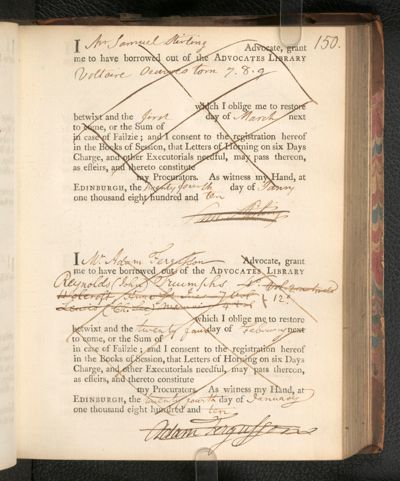 150.
I Mr Samuel Stirling Advocate, grant
me to have borrowed out of the ADVOCATES LIBRARY
Voltaire Oeuvres tom 7.8.9
which I oblige me to restore
betwixt and the first day of March next
to come, or the Sum of
in case of Failzie; and I consent to the registration hereof
in the Books of Session, that Letters of Horning on six Days
Charge, and other Executorials needful, may pass thereon,
as effeirs, and thereto constitute
my Procurators. As witness my Hand, at
EDINBURGH, the twenty fourth day of Janry
one thousand eight hundred and ten
I Mr Adam Fergusson Advocate, grant
me to have borrowed out of the ADVOCATES LIBRARY
Reynolds (John) Triumphs
Holcroft
12o
which I oblige me to restore
betwixt and the twenty fourth day of February next
to come, or the Sum of
in case of Failzie; and I consent to the registration hereof
in the Books of Session, that Letters of Horning on six Days
Charge, and other Executorials needful, may pass thereon,
as effeirs, and thereto constitute
my Procurators. As witness my Hand, at
EDINBURGH, the twenty fourth day of January
one thousand eight hundred and ten
Adam Fergusson